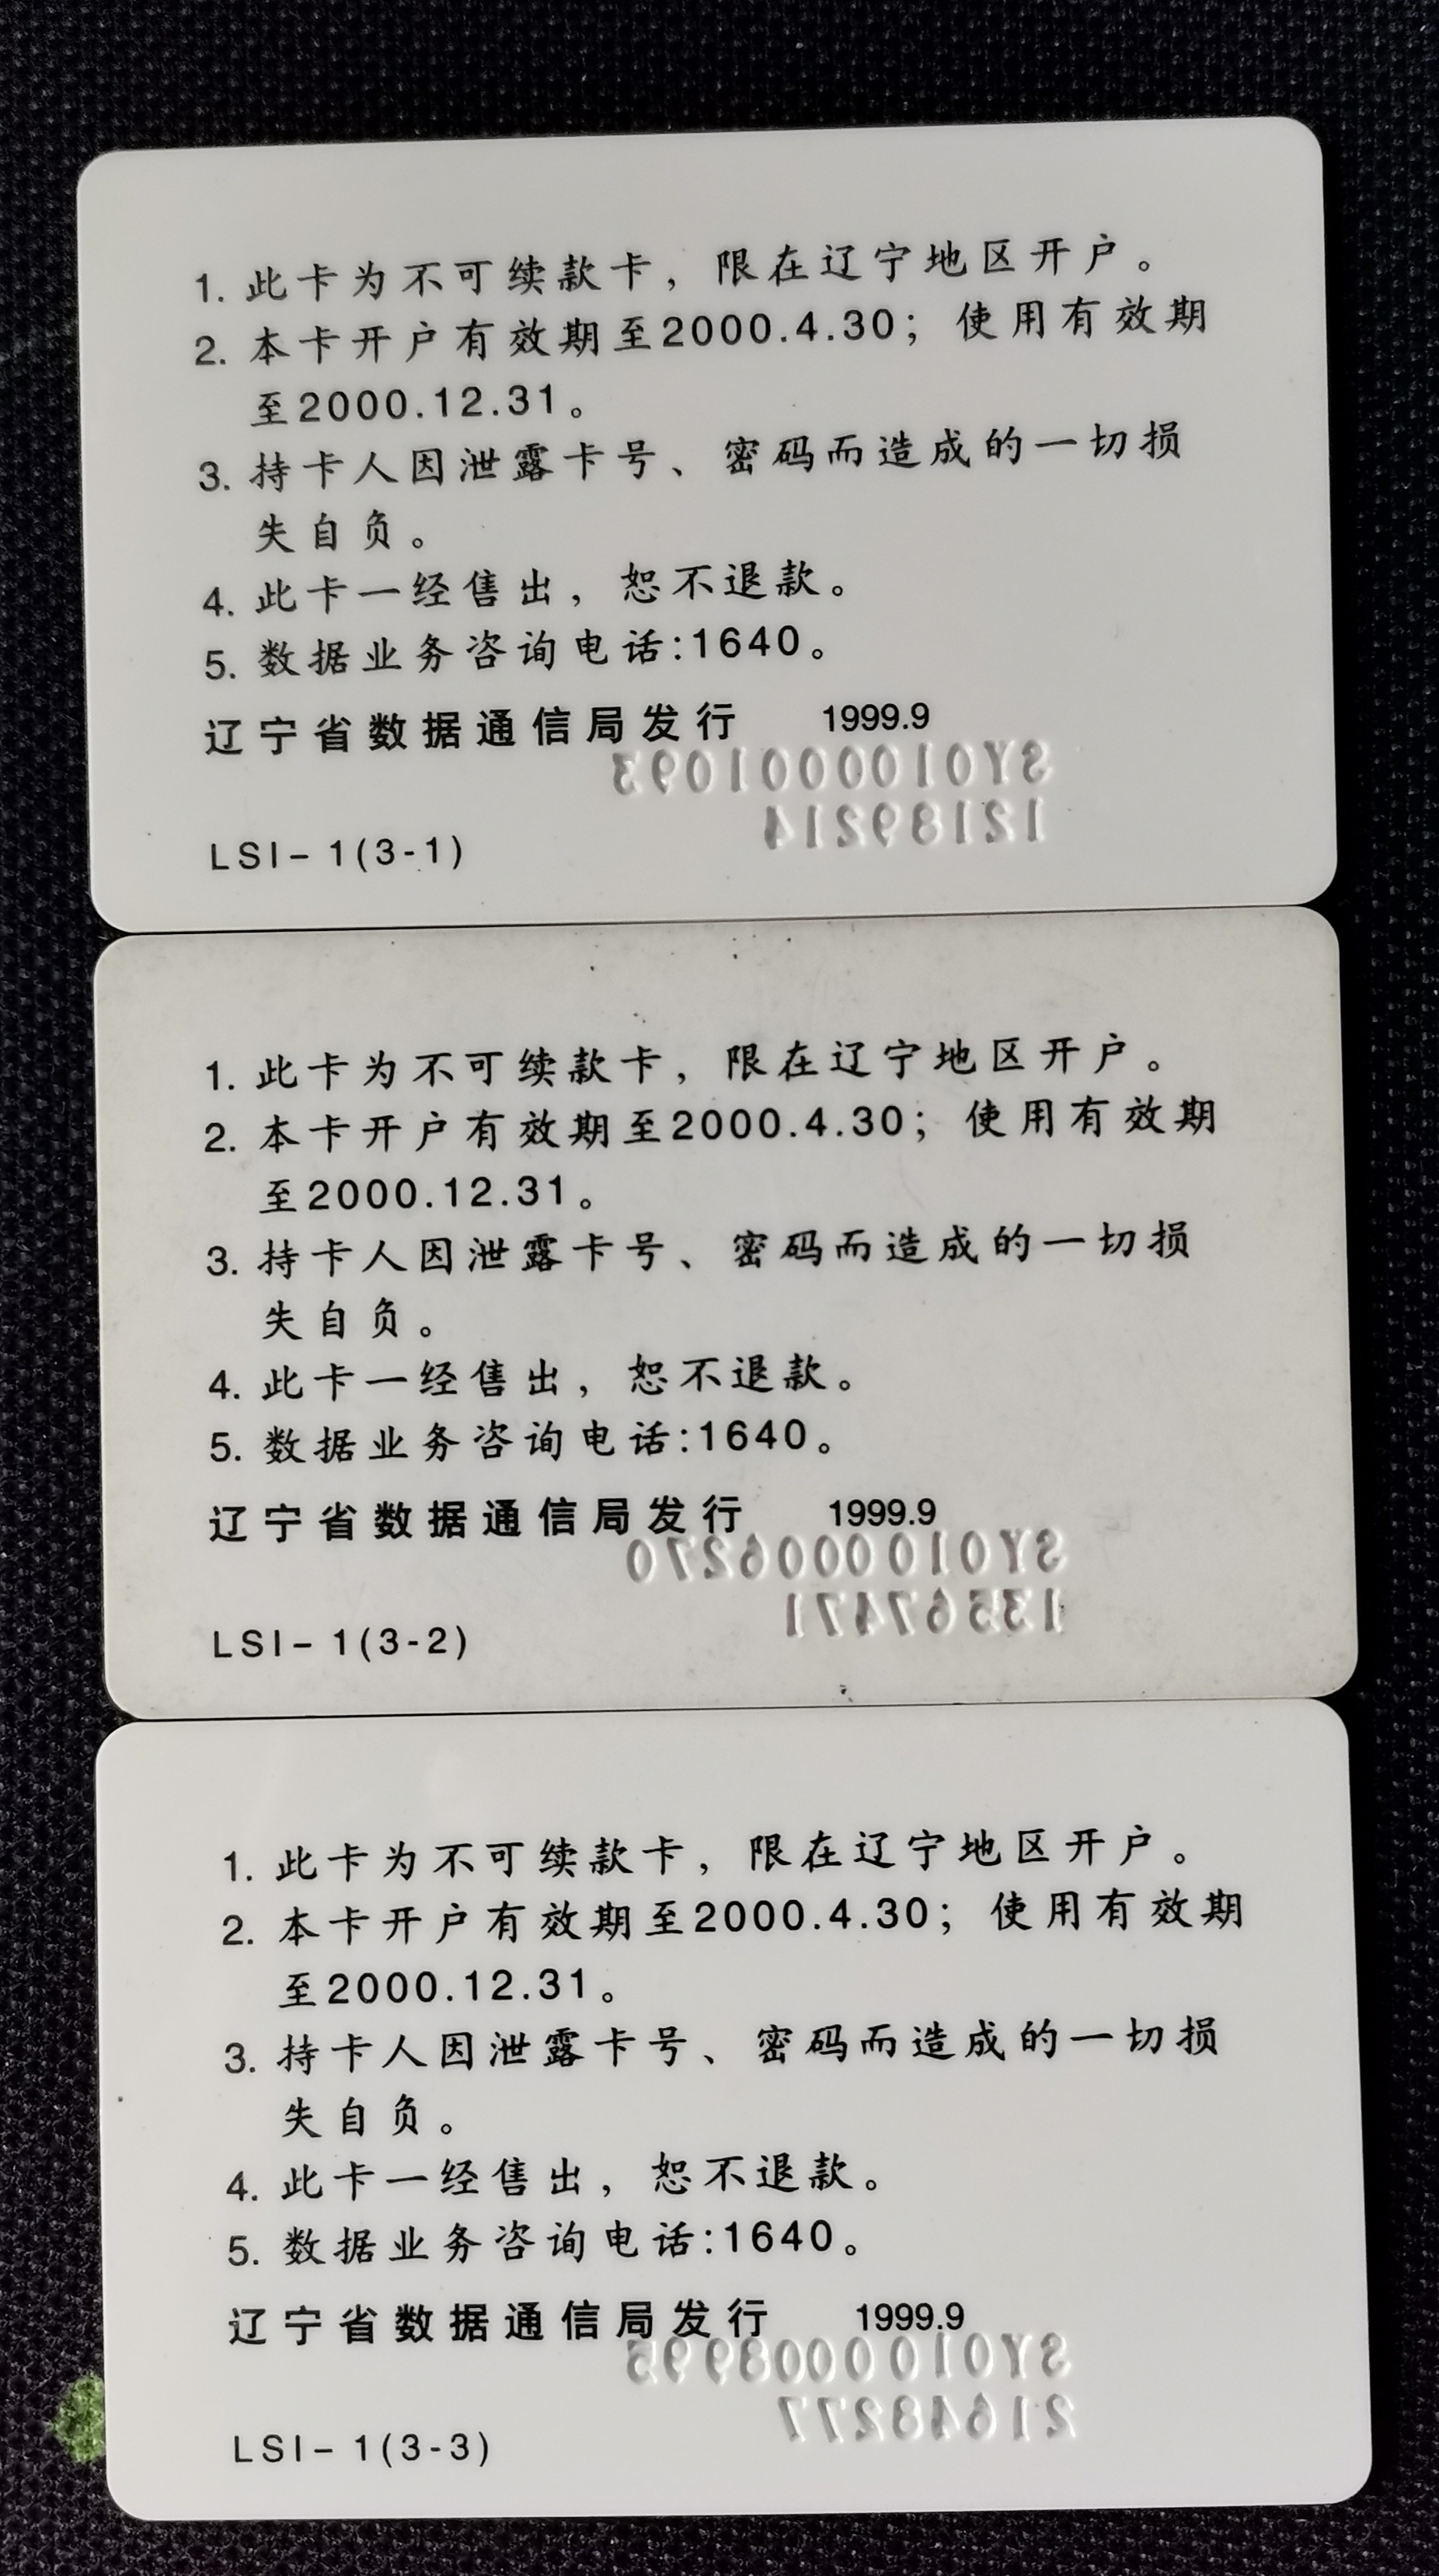 1. 此卡为不可续款卡，限在辽宁地区开户。
2. 本卡开户有效期至2000.4.30；使用有效期
至2000.12.31。
3. 持卡人因泄露卡号、密码而造成的一切损
失自负。
4. 此卡一经售出，恕不退款。
5. 数据业务咨询电话:1640。
辽宁省数据通信局发行 1999.9
SY0100001093
12189214
LSI-1(3-1)
1. 此卡为不可续款卡，限在辽宁地区开户。
2. 本卡开户有效期至2000.4.30；使用有效期
至2000.12.31。
3. 持卡人因泄露卡号、密码而造成的一切损
失自负。
4. 此卡一经售出，恕不退款。
5. 数据业务咨询电话:1640。
辽宁省数据通信局发行 1999.9
SY0100006270
13567471
LSI-1(3-2)
1. 此卡为不可续款卡，限在辽宁地区开户。
2. 本卡开户有效期至2000.4.30；使用有效期
至2000.12.31。
3. 持卡人因泄露卡号、密码而造成的一切损
失自负。
4. 此卡一经售出，恕不退款。
5. 数据业务咨询电话:1640。
辽宁省数据通信局发行 1999.9
SY0100008995
21648277
LSI-1(3-3)